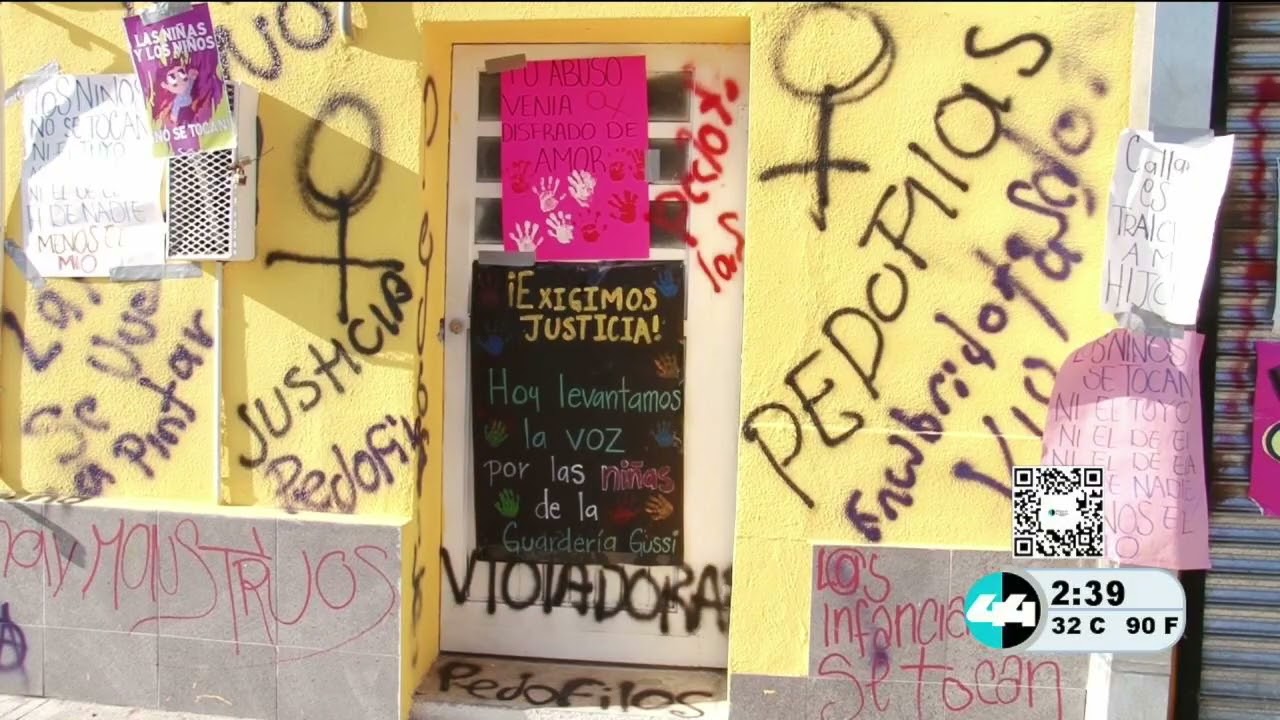 LAS NIÑAS
Y LOS NIÑOS
NO SE TOCAN
LOS NIÑOS
NO SE TOCAN
NI EL TUYO
NI EL DE
NI DE NADIE
MENOS EL
MIO
La
Se Va
a Pintar
JUSTICIA
Pedofi
HAY MONSTRUOS
TU ABUSO
VENIA
DISFRADO DE
AMOR
las
¡EXIGIMOS
JUSTICIA!
Hoy levantamos
la voz
por las niñas
de la
Guardería Gussi
VIOLADORAS
Pedofilos
PEDOFILAS
Encubridoras
Calla
es
TRAICI
A M
HIJO
LOS NIÑOS
SE TOCAN
NI EL TUYO
NI EL DE EL
NI EL DE EA
E NADIE
NOS EL
IO
Las
infancia
Se tocan
44
2:39
32 C 90 F